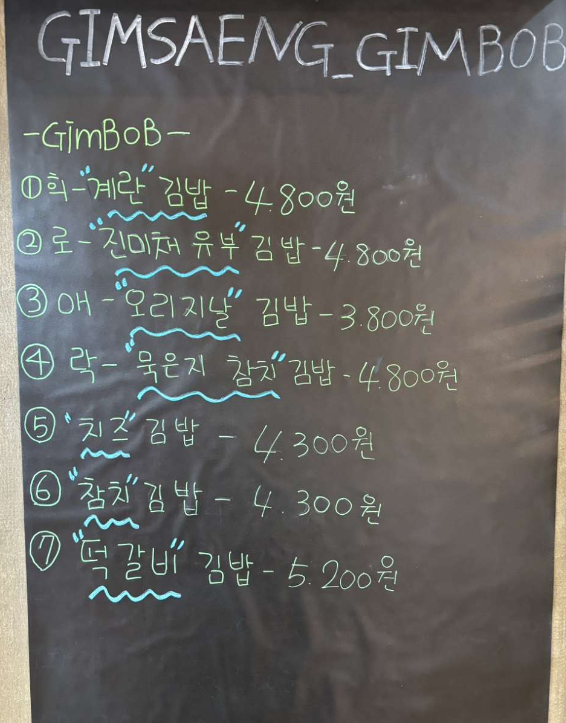 GIMSAENG_GIMBOB
-GimBoB-
①희-"계란" 김밥 - 4.800원
②로-"진미채 유부" 김밥 - 4.800원
③ 애-"오리지날" 김밥 - 3.800원
④ 락-"묵은지 참치" 김밥 - 4.800원
⑤ "치즈" 김밥 - 4.300원
⑥ "참치" 김밥 - 4.300원
⑦ "떡갈비" 김밥 - 5.200원